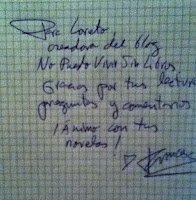 Para Loreto
creadora del blog
No Puedo Vivir Sin Libros
Gracias por tus lecturas
preguntas y comentarios
¡Ánimo con tus
novelas!